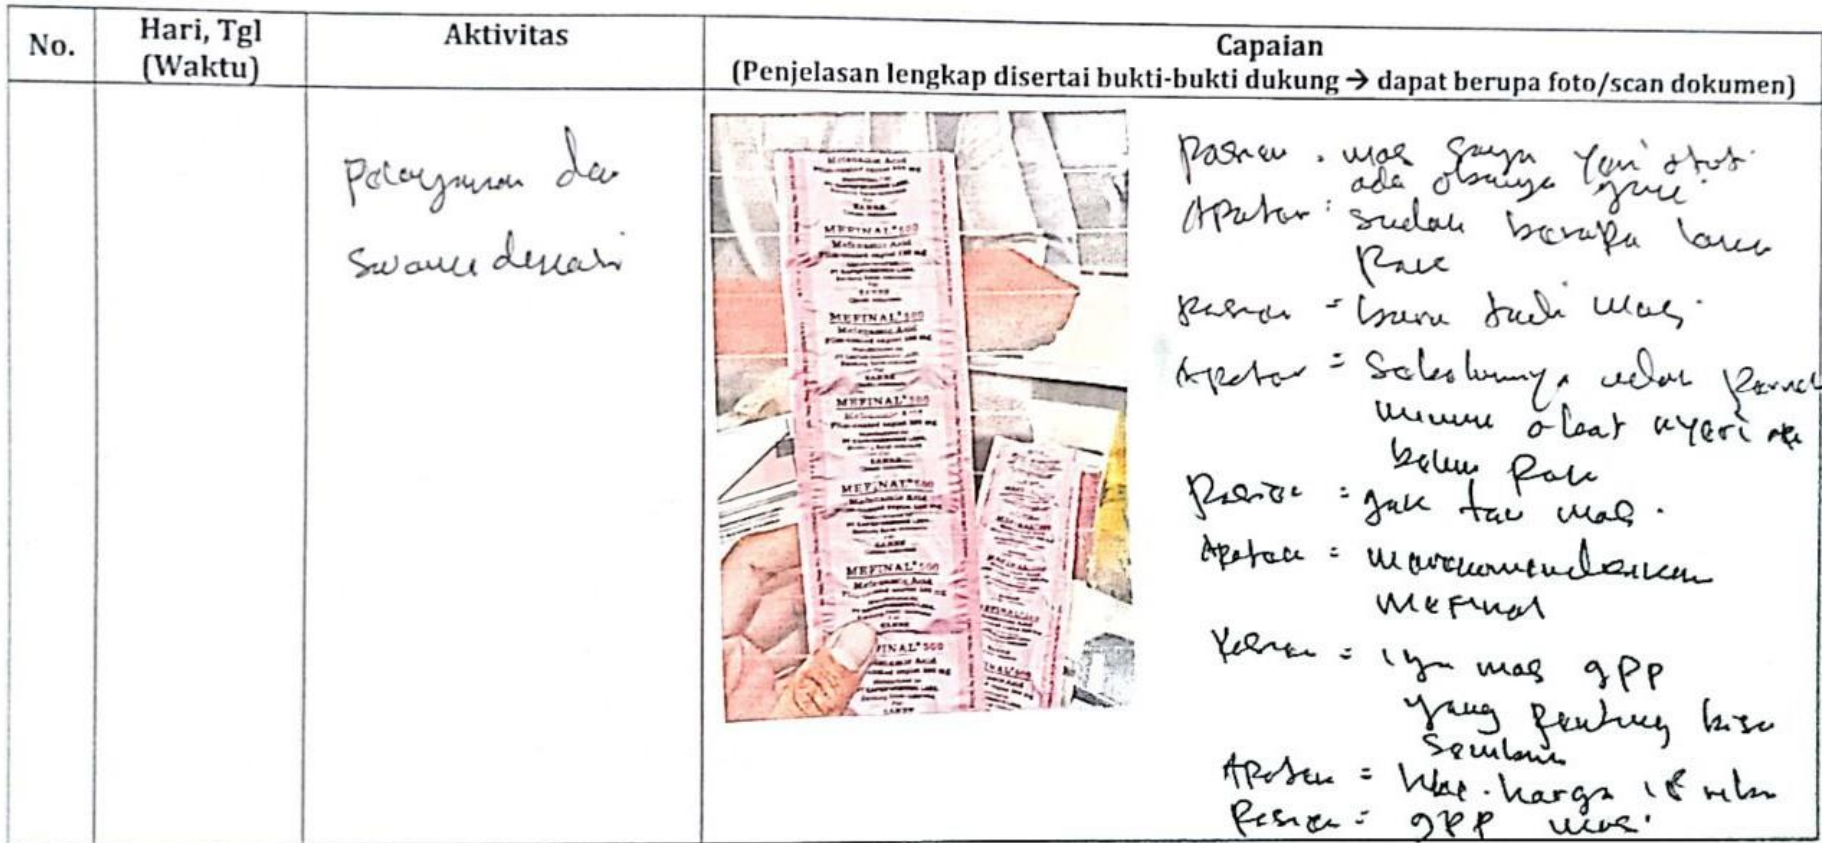 No.
Hari, Tgl
(Waktu)
Aktivitas
Capaian
(Penjelasan lengkap disertai bukti-bukti dukung → dapat berupa foto/scan dokumen)
Pelayanan dan
Swamedikasi
Mefenamic Acid
MEFINAL® 500
Mefenamic Acid
MEFINAL® 500
Mefenamic Acid
MEFINAL® 500
Mefenamic Acid
MEFINAL® 500
Mefenamic Acid
MEFINAL® 500
Mefenamic Acid
FINAL® 500
Pasien = mas saya
ada obatnya
Apoteker = sudah berapa lama
Pak
Pasien = baru tadi mas.
Apoteker = Sebelumnya udah pernah
minum obat nyeri
belum Pak
Pasien = gak tau mas.
Apoteker = merekomendasikan
mefinal
Pasien = iya mas gpp
yang penting bisa
sembuh
Apoteker = harga 18 ribu
Pasien = gpp mas.